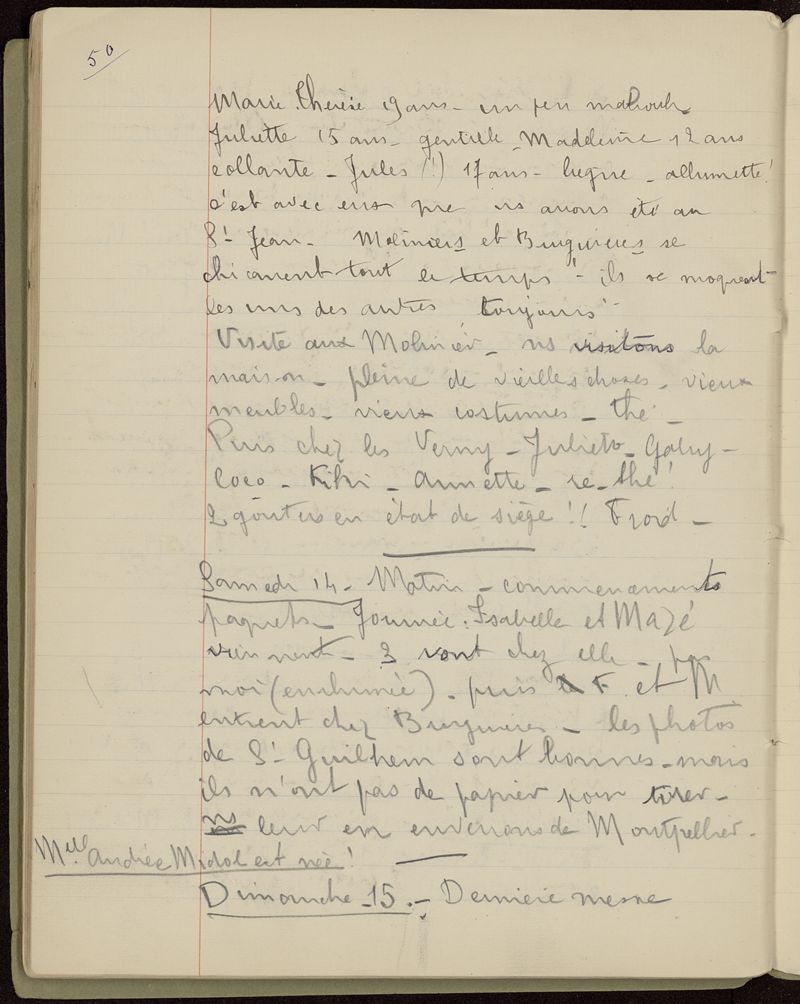 50
Marie Thérèse 19 ans - un peu
Juliette 15 ans - gentille - Madeleine 12 ans
collante - Jules (!) 17 ans - - allumette!
c'est avec eux que ns avons été au
St Jean - Moliniers et Bruguières se
chicanent tout le temps - ils se moquent
les uns des autres toujours -
Visite aux Molinier - ns visitons la
maison - pleine de vieilles choses - vieux
meubles - vieux costumes - thé -
Puis chez les Verny - Juliette - Gaby -
Coco - Kiki - Annette - re-thé!
2 goûters en état de siège!! Froid -
Samedi 14 - Matin - commencements
paquets - Journée : Isabelle et Mazé
viennent - 3 vont chez elle - pas
moi (enrhumée) - puis F. et M.
entrent chez Bruguières - les photos
de St Guilhem sont bonnes - mais
ils n'ont pas de papier pour tirer -
ns leur en envenons de Montpellier -
Melle Andrée Midol est née!
Dimanche 15. - Dernière messe